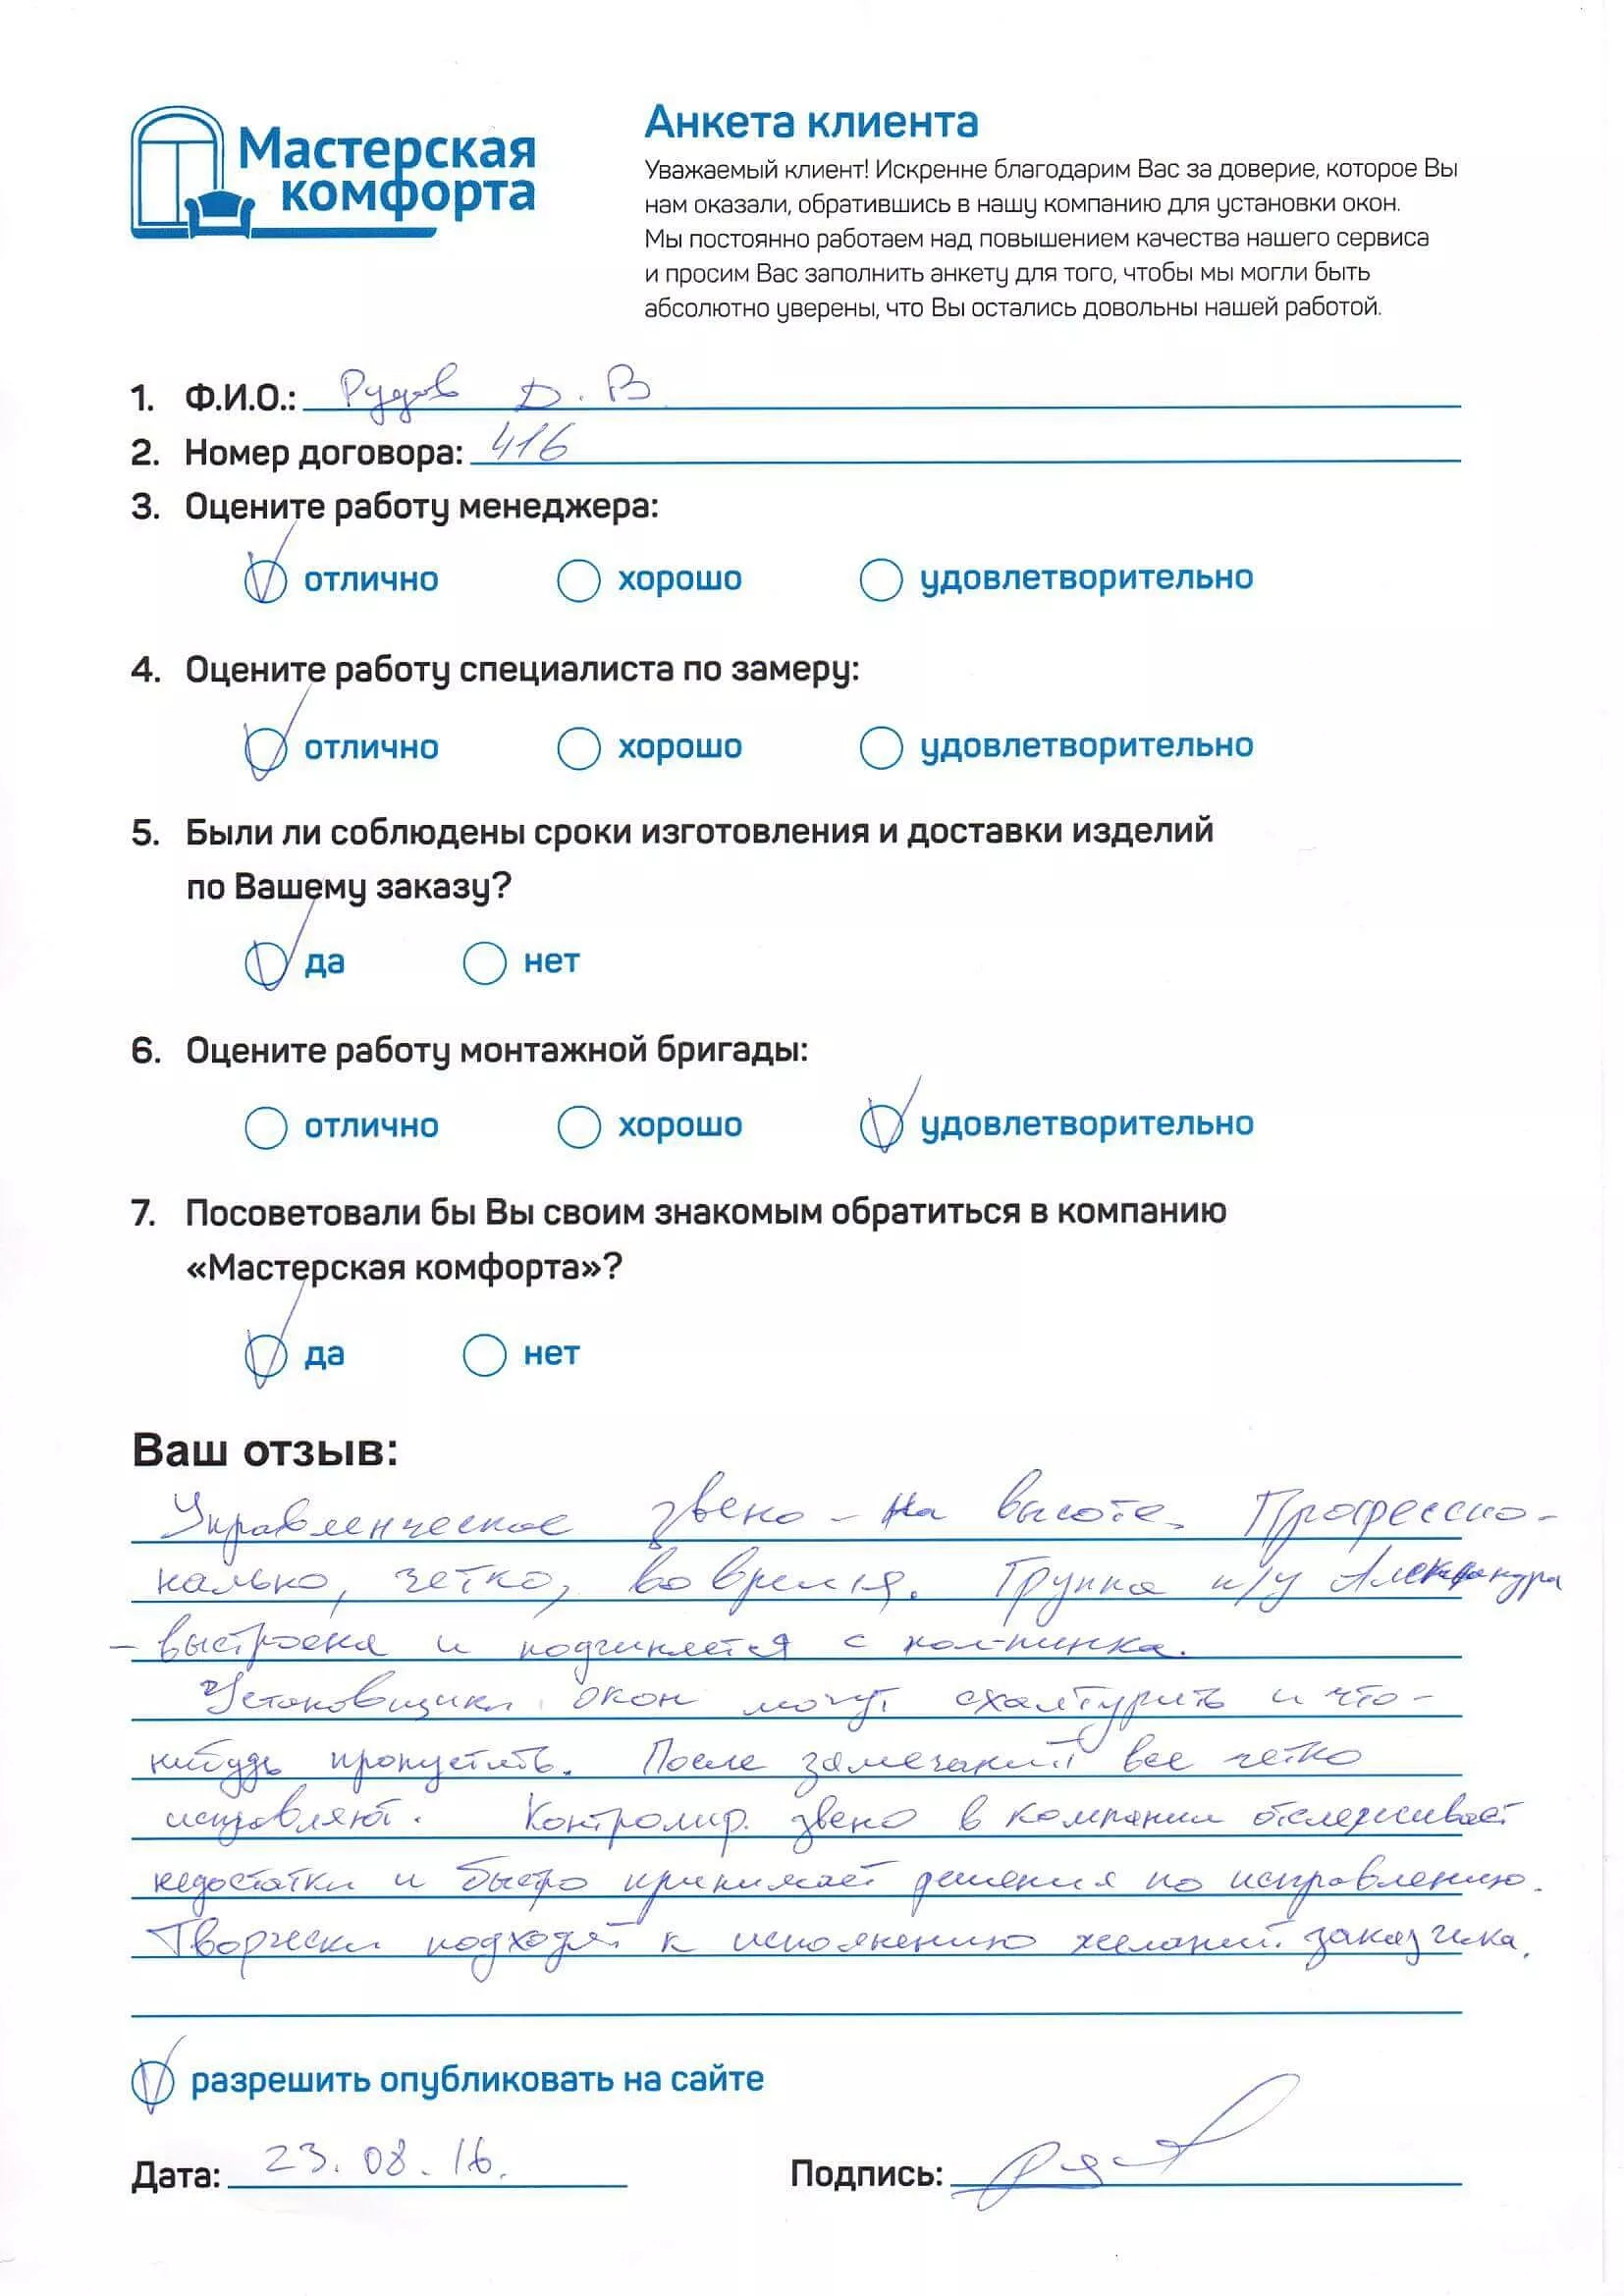 Мастерская
комфорта
Анкета клиента
Уважаемый клиент! Искренне благодарим Вас за доверие, которое Вы
нам оказали, обратившись в нашу компанию для установки окон.
Мы постоянно работаем над повышением качества нашего сервиса
и просим Вас заполнить анкету для того, чтобы мы могли быть
абсолютно уверены, что Вы остались довольны нашей работой.
1. Ф.И.О.: Рудов Д. В
2. Номер договора: 416
3. Оцените работу менеджера:
отлично хорошо удовлетворительно
4. Оцените работу специалиста по замеру:
отлично хорошо удовлетворительно
5. Были ли соблюдены сроки изготовления и доставки изделий
по Вашему заказу?
да нет
6. Оцените работу монтажной бригады:
отлично хорошо удовлетворительно
7. Посоветовали бы Вы своим знакомым обратиться в компанию
«Мастерская комфорта»?
да нет
Ваш отзыв:
Управленческое звено – на высоте. Профессио-
нально, четко, во время. Группа п/у Александра
– выстроена и подчиняется с пол-пинка.
Установщики окон могут схалтурить и что-
нибудь пропустить. После замечаний все четко
исправляют. Контролир. звено в компании отслеживает
недостатки и быстро принимает решения по исправлению.
Творчески подходят к исполнению желаний заказчика.
разрешить опубликовать на сайте
Дата: 23.08.16. Подпись: